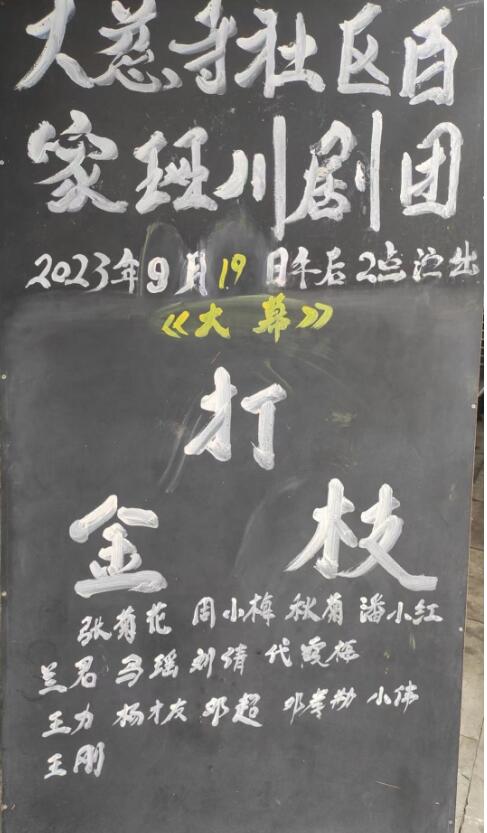 大慈寺社区百
家班川剧团
2023年9月19日午后2点演出
《大幕》
打
金 枝
张菊花 周小梅 秋菊 潘小红
兰君 马瑶 刘倩 代霞
王力 杨才友 邓超 邓孝勋 小伟
王刚